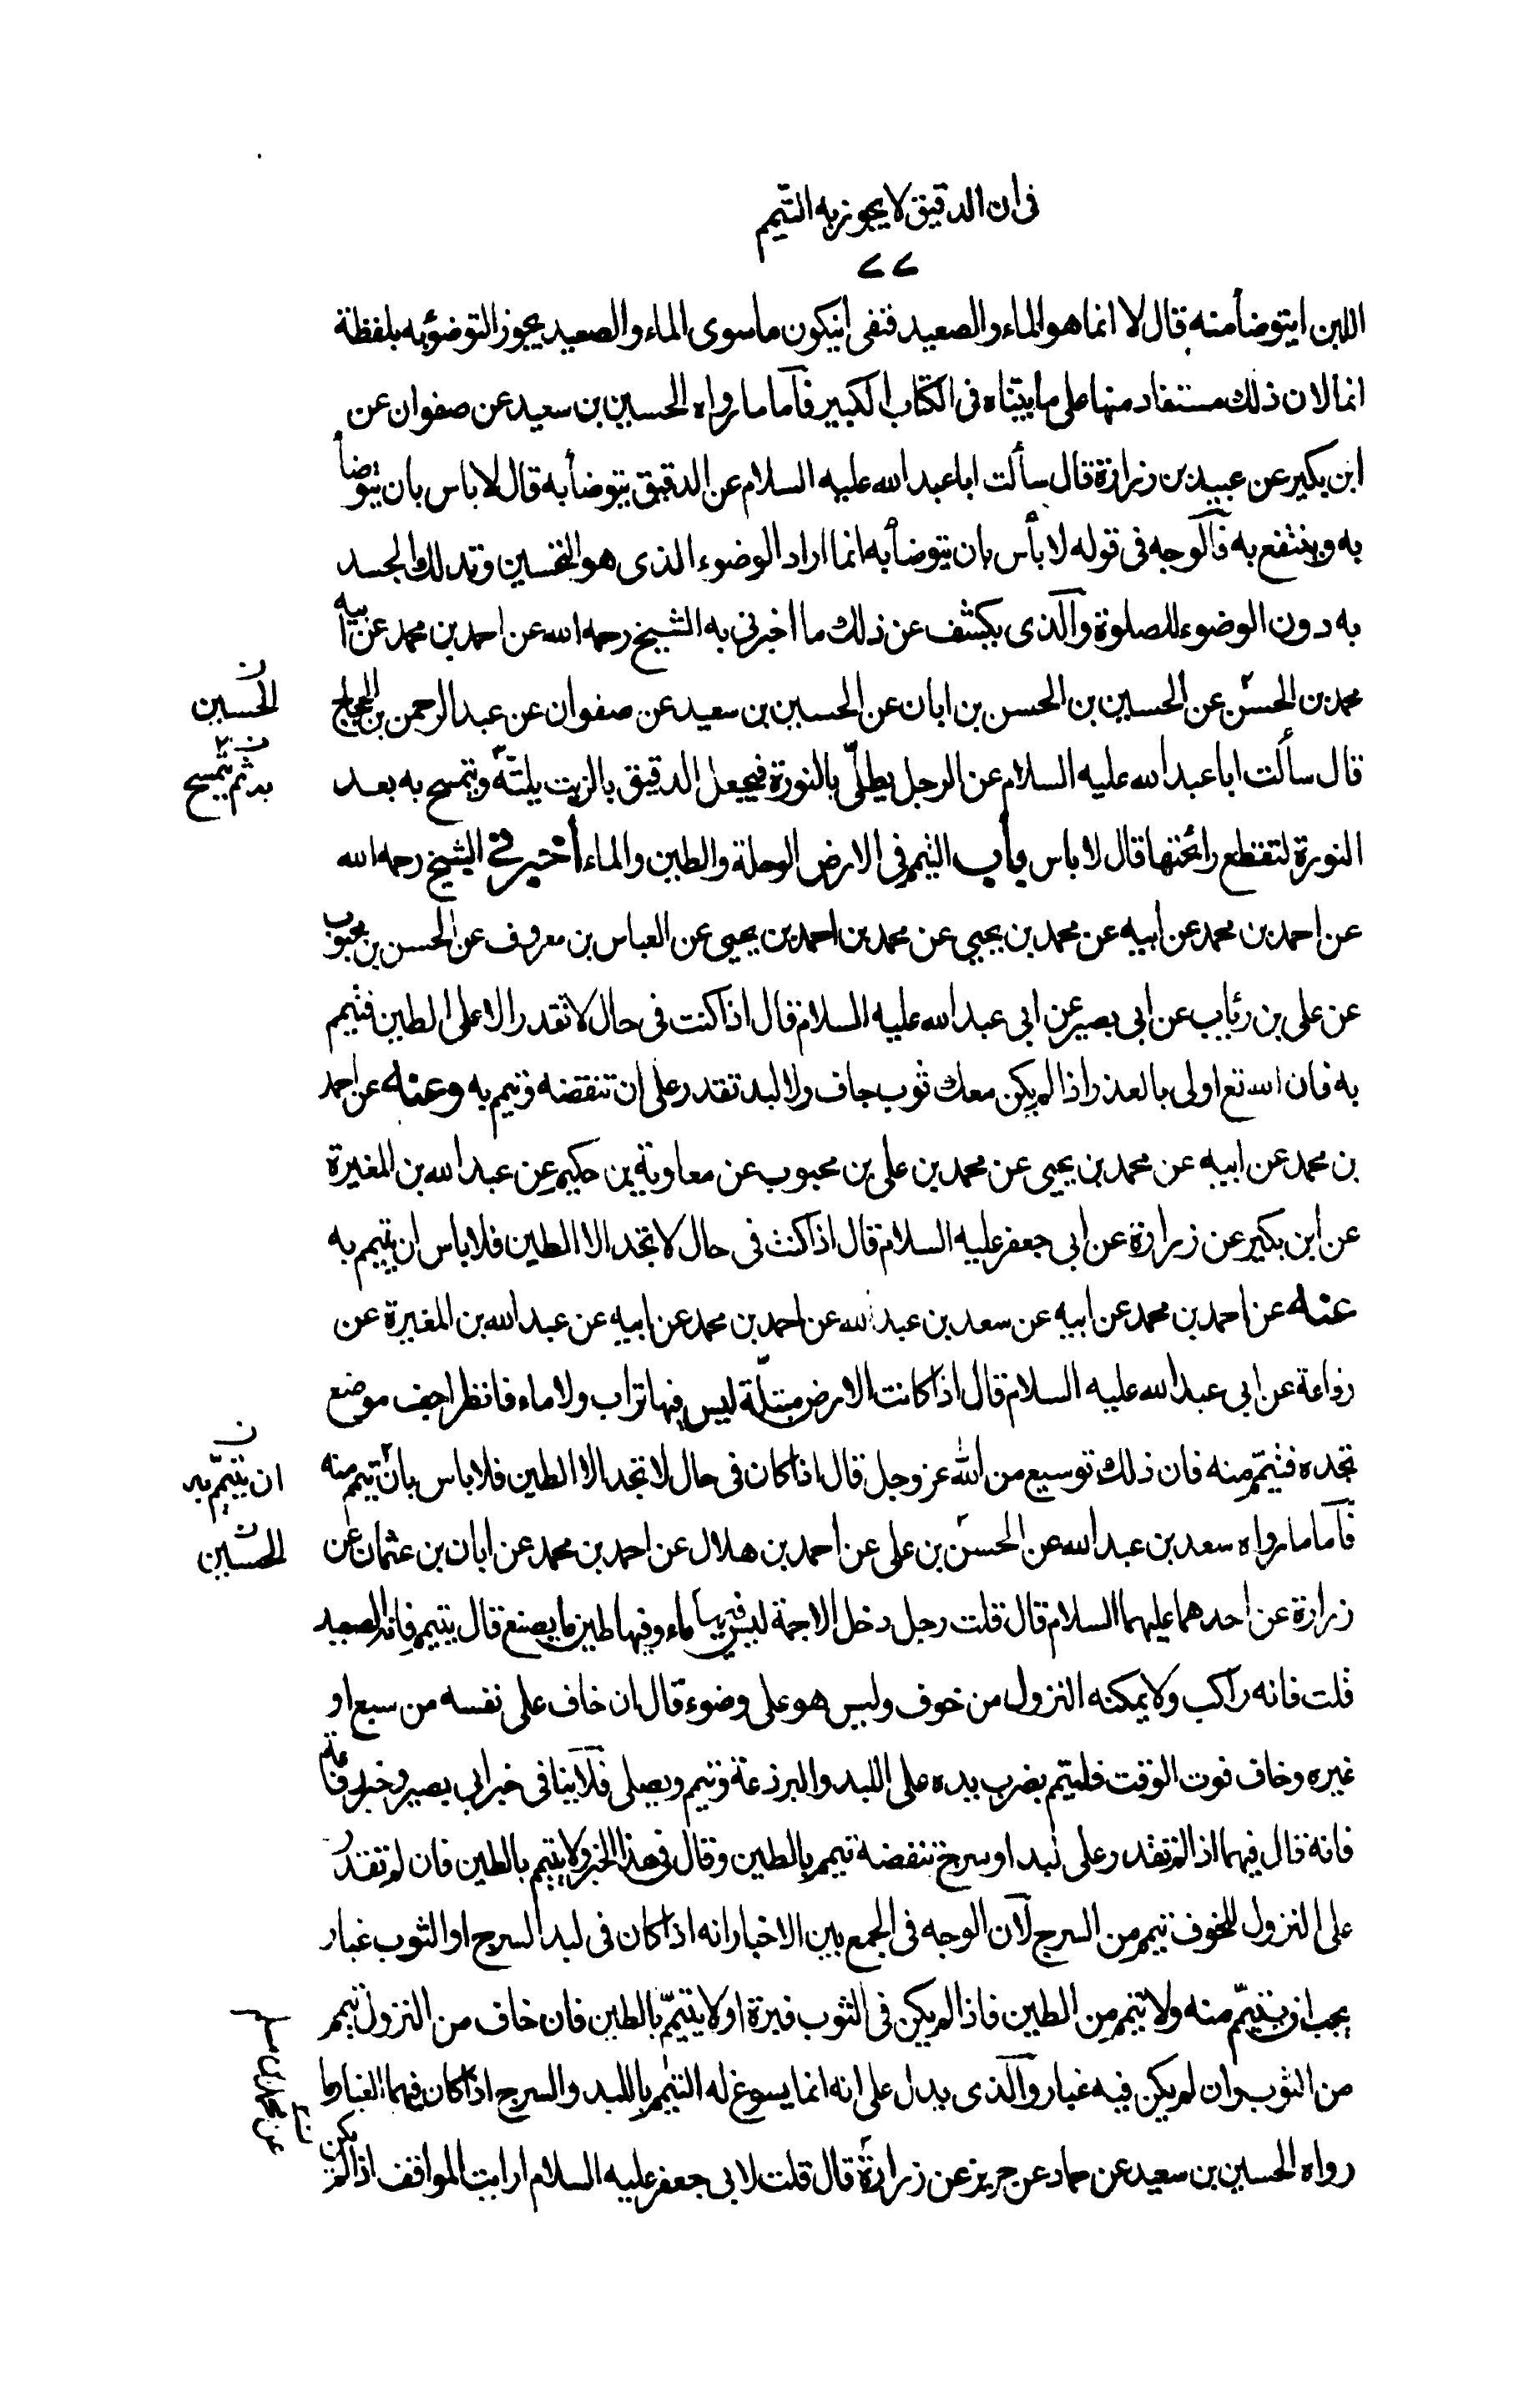 فى ان الدقيق لا يجوز به التيمم
٧٧
اللبن ايتوضأ منه قال لا انما هو الماء والصعيد فنفى ان يكون ما سوى الماء والصعيد يجوز التوضؤ به بلفظة
انما لان ذلك مستفاد منها على ما بيّناه فى الكتاب الكبير فآما ما رواه الحسين بن سعيد عن صفوان عن
ابن بكير عن عبيد بن زرارة قال سألت ابا عبد الله عليه السلام عن الدقيق يتوضأ به قال لا باس بان يتوضأ
به وينتفع به فآلوجه فى قوله لا بأس بان يتوضأ به انما اراد الوضوء الذى هو التحسين وتدلك الجسد
به دون الوضوء للصلوة وآلذى يكشف عن ذلك ما اخبرنى به الشيخ رحمه الله عن احمد بن محمد عن ابيه
محمد بن الحسن عن الحسين بن الحسن بن ابان عن الحسين بن سعيد عن صفوان عن عبد الرحمن بن الحجاج
قال سألت ابا عبد الله عليه السلام عن الرجل يطلّى بالنورة فيجعل الدقيق بالزيت يلتّه ويتمسح به بعد
النورة لتقطع رائحتها قال لا باس باب التيمم فى الارض الوحلة والطين والماء أخبرني الشيخ رحمه الله
عن احمد بن محمد عن ابيه عن محمد بن يحيى عن محمد بن احمد بن يحيى عن العباس بن معروف عن الحسن بن محبوب
عن على بن رئاب عن ابى بصير عن ابى عبد الله عليه السلام قال اذا كنت فى حال لا تقدر الا على الطين فتيمم
به فان الله تع اولى بالعذر اذا لم يكن معك ثوب جاف ولا لبد تقدر على ان تنفضه وتيمم به وعنه عن احمد
بن محمد عن ابيه عن محمد بن يحيى عن محمد بن على بن محبوب عن معاوية بن حكيم عن عبد الله بن المغيرة
عن ابن بكير عن زرارة عن ابى جعفر عليه السلام قال اذا كنت فى حال لا تجد الا الطين فلا باس ان تيمم به
عنه عن احمد بن محمد عن ابيه عن سعد بن عبد الله عن احمد بن محمد عن ابيه عن عبد الله بن المغيرة عن
رفاعة عن ابى عبد الله عليه السلام قال اذا كانت الارض مبتلّة ليس فيها تراب ولا ماء فانظر اجف موضع
تجده فتيمّم منه فان ذلك توسيع من الله عز وجل قال اذا كان فى حال لا تجد الا الطين فلا باس بان تيمم منه
فآما ما رواه سعد بن عبد الله عن الحسن بن على عن احمد بن هلال عن احمد بن محمد عن ابان بن عثمان عن
زرارة عن احدهما عليهما السلام قال قلت رجل دخل الاجمة ليس فيها ماء وفيها طين ما يصنع قال يتيمم فانه الصعيد
قلت فانه راكب ولا يمكنه النزول من خوف وليس هو على وضوء قال ان خاف على نفسه من سبع او
غيره وخاف فوت الوقت فليتيمم يضرب بيده على اللبد والبرذعة وتيمم ويصلى فلآ ينافى خبر ابى بصير وخبر رفاعة
فانه قال فيهما اذا لم تقدر على لبد او سرج تنفضه تيمم بالطين وقال فى هذا الخبر ولا يتيمم بالطين فان لم تقدر
على النزول للخوف تيمم من السرج لآن الوجه فى الجمع بين الاخبار انه اذا كان فى لبد السرج او الثوب غبار
يجب ان يتيمّم منه ولا تيمم من الطين فاذا لم يكن فى الثوب غبرة اولا يتيمّم بالطين فان خاف من النزول تيمم
من الثوب وان لم يكن فيه غبار وآلذى يدل على انه انما يسوغ له التيمم باللبد والسرج اذا كان فيهما الغبار ما
رواه الحسين بن سعيد عن حماد عن حريز عن زرارة قال قلت لابى جعفر عليه السلام ارايت المواقف اذا لم يكن
الحسين ن
به ثم يتمسح ن
ان يتيمّم به ن
الحسين ن